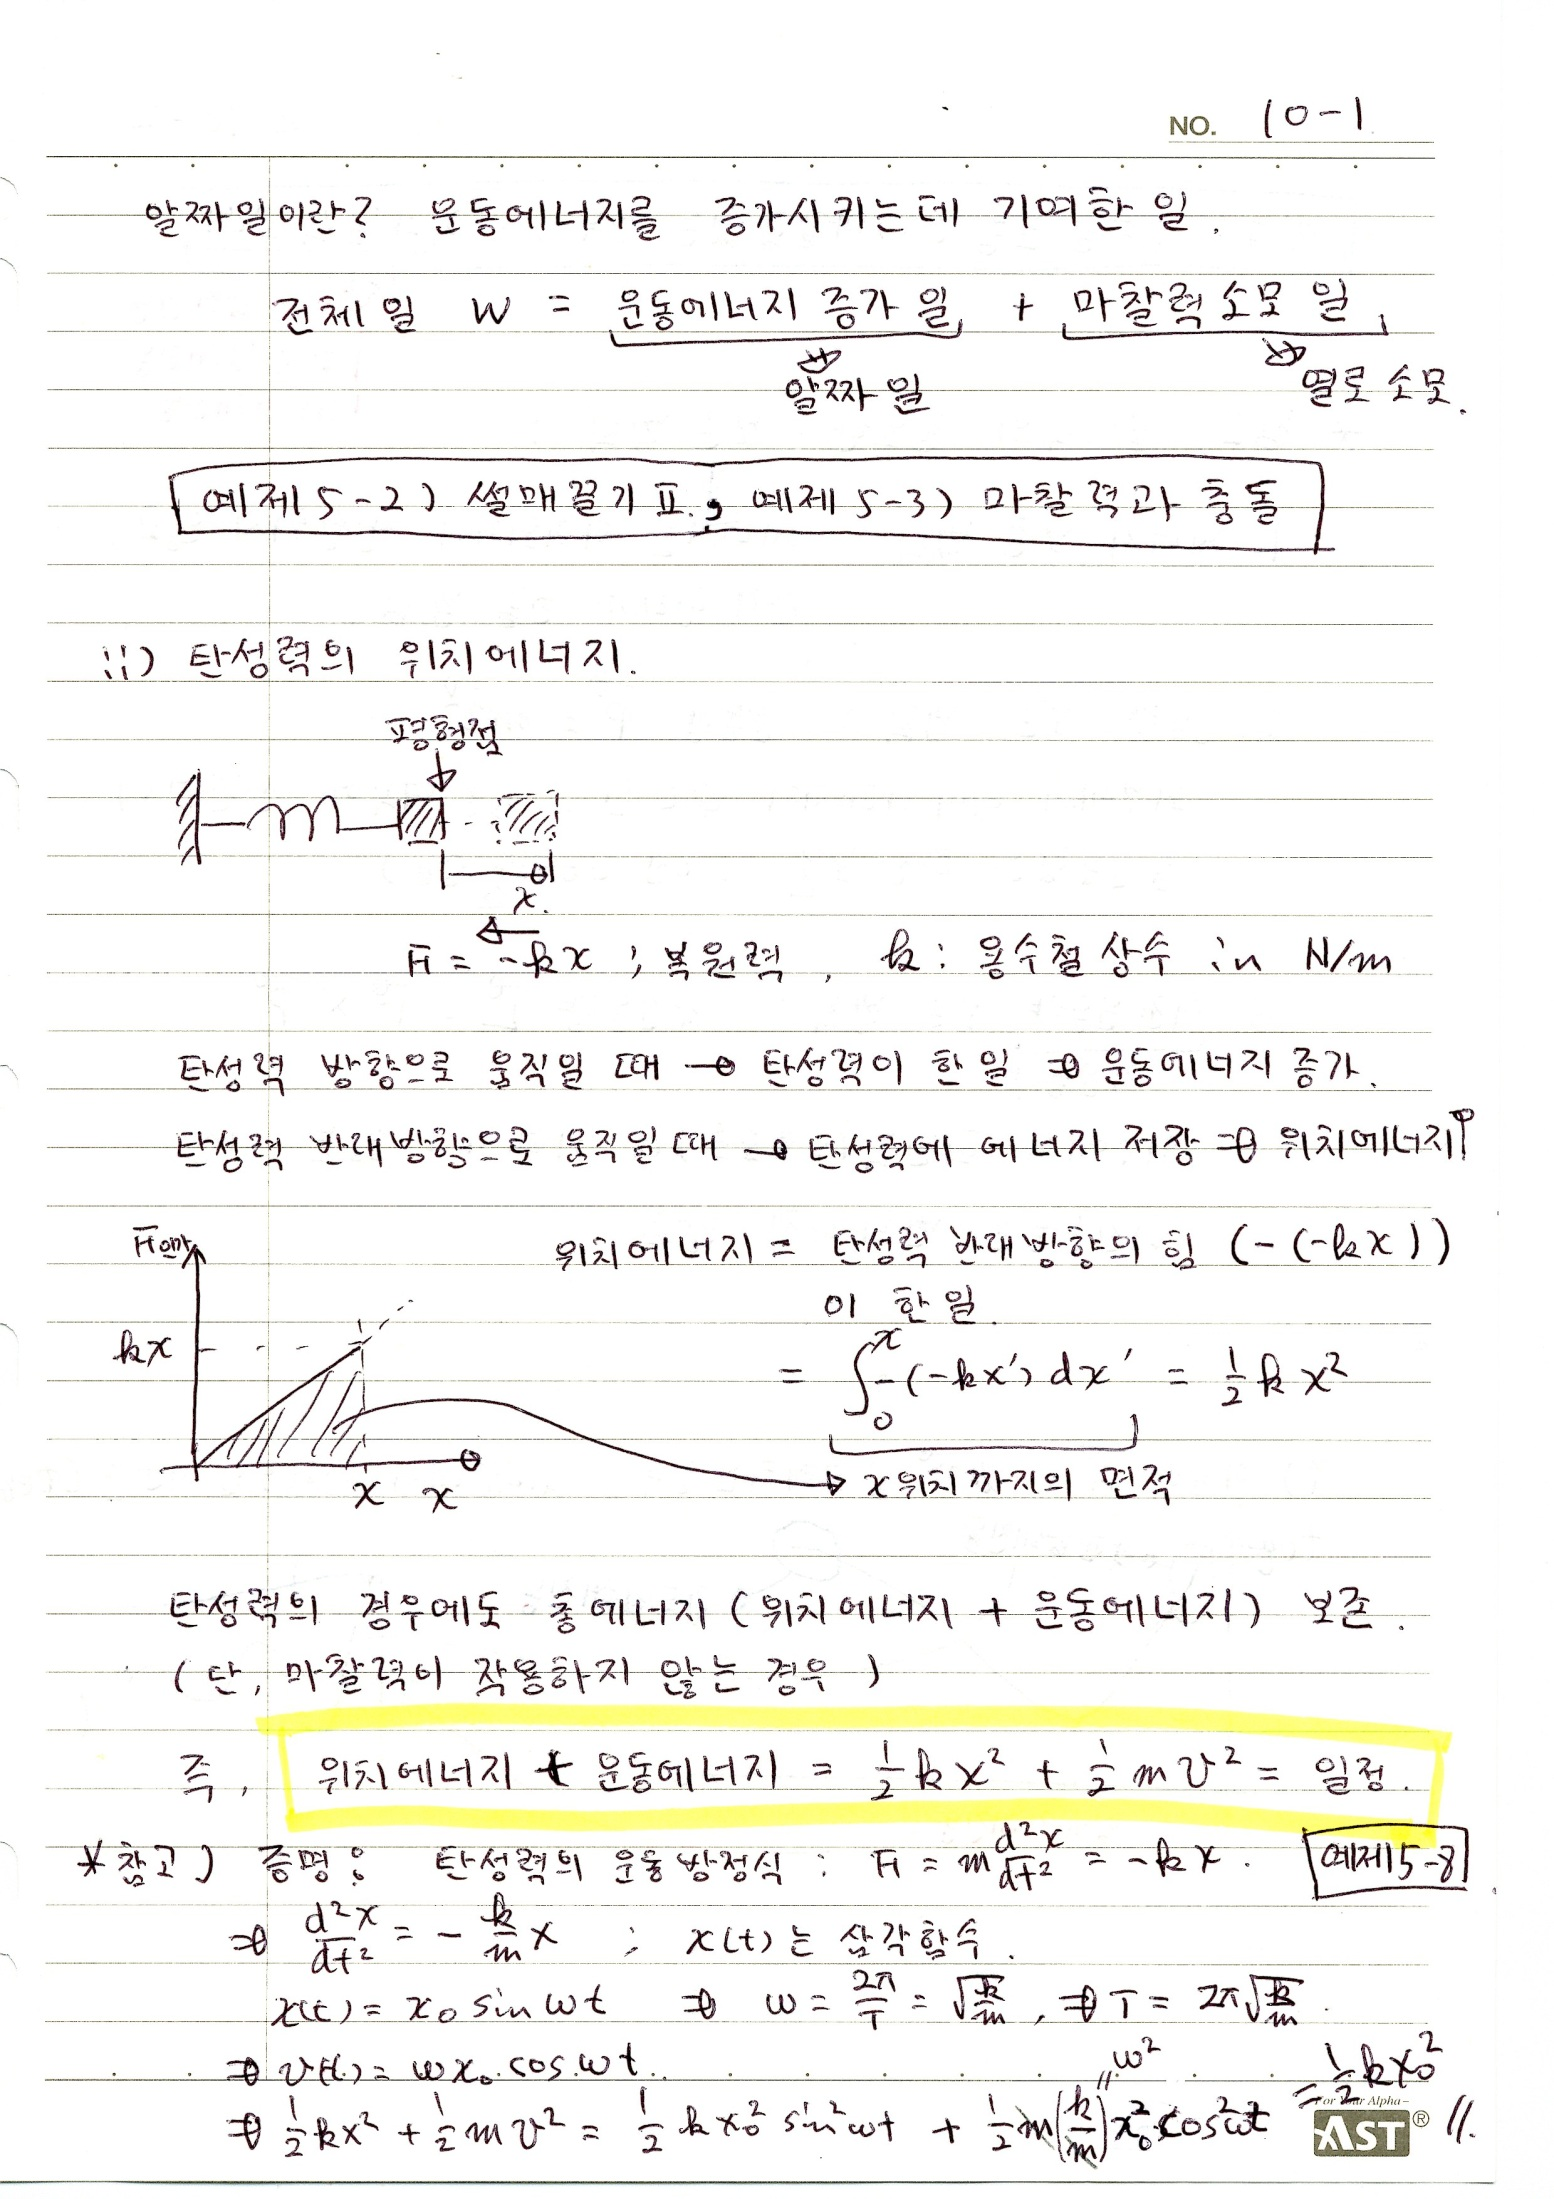 NO. 10-1
알짜일이란? 운동에너지를 증가시키는데 기여한 일.
전체일 W = 운동에너지 증가 일 + 마찰력 소모 일
알짜일
열로 소모.
예제 5-2) 썰매끌기 II, 예제 5-3) 마찰력과 충돌
ii) 탄성력의 위치에너지.
평형점
x
F = -kx ; 복원력, k : 용수철 상수 in N/m
탄성력 방향으로 움직일 때 → 탄성력이 한 일 ⇒ 운동에너지 증가.
탄성력 반대방향으로 움직일 때 → 탄성력에 에너지 저장 ⇒ 위치에너지↑
위치에너지 = 탄성력 반대방향의 힘 (-(-kx))
이 한 일.
kx
= ∫₀ˣ -(-kx') dx' = 1/2 k x²
x x
→ x위치까지의 면적
탄성력의 경우에도 총에너지 (위치에너지 + 운동에너지) 보존.
(단, 마찰력이 작용하지 않는 경우)
즉, 위치에너지 + 운동에너지 = 1/2 k x² + 1/2 m v² = 일정.
*참고) 증명: 탄성력의 운동방정식 : F = m d²x/dt² = -kx. 예제 5-8
⇒ d²x/dt² = - k/m x ; x(t)는 삼각함수.
x(t) = x₀ sin ωt ⇒ ω = 2π/T = √(k/m), ⇒ T = 2π√(k/m).
⇒ v(t) = ωx₀ cos ωt
ω²
⇒ 1/2 kx² + 1/2 m v² = 1/2 k x₀² sin² ωt + 1/2 m(k/m) x₀² cos² ωt = 1/2 k x₀² //.
For Your Alpha-
AST®